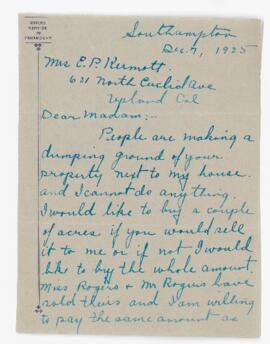 Southampton
Dec. 7, 1925
Mrs E. P. Kermott.
621 North Euclid Ave
Upland Cal
Dear Madam:-
People are making a
dumping ground of your
property next to my house
and I cannot do any thing.
I would like to buy a couple
of acres if you would sell
it to me or if not I would
like to buy the whole amount.
Miss Rogers & Mr Rogers have
sold theirs and I am willing
to pay the same amount as